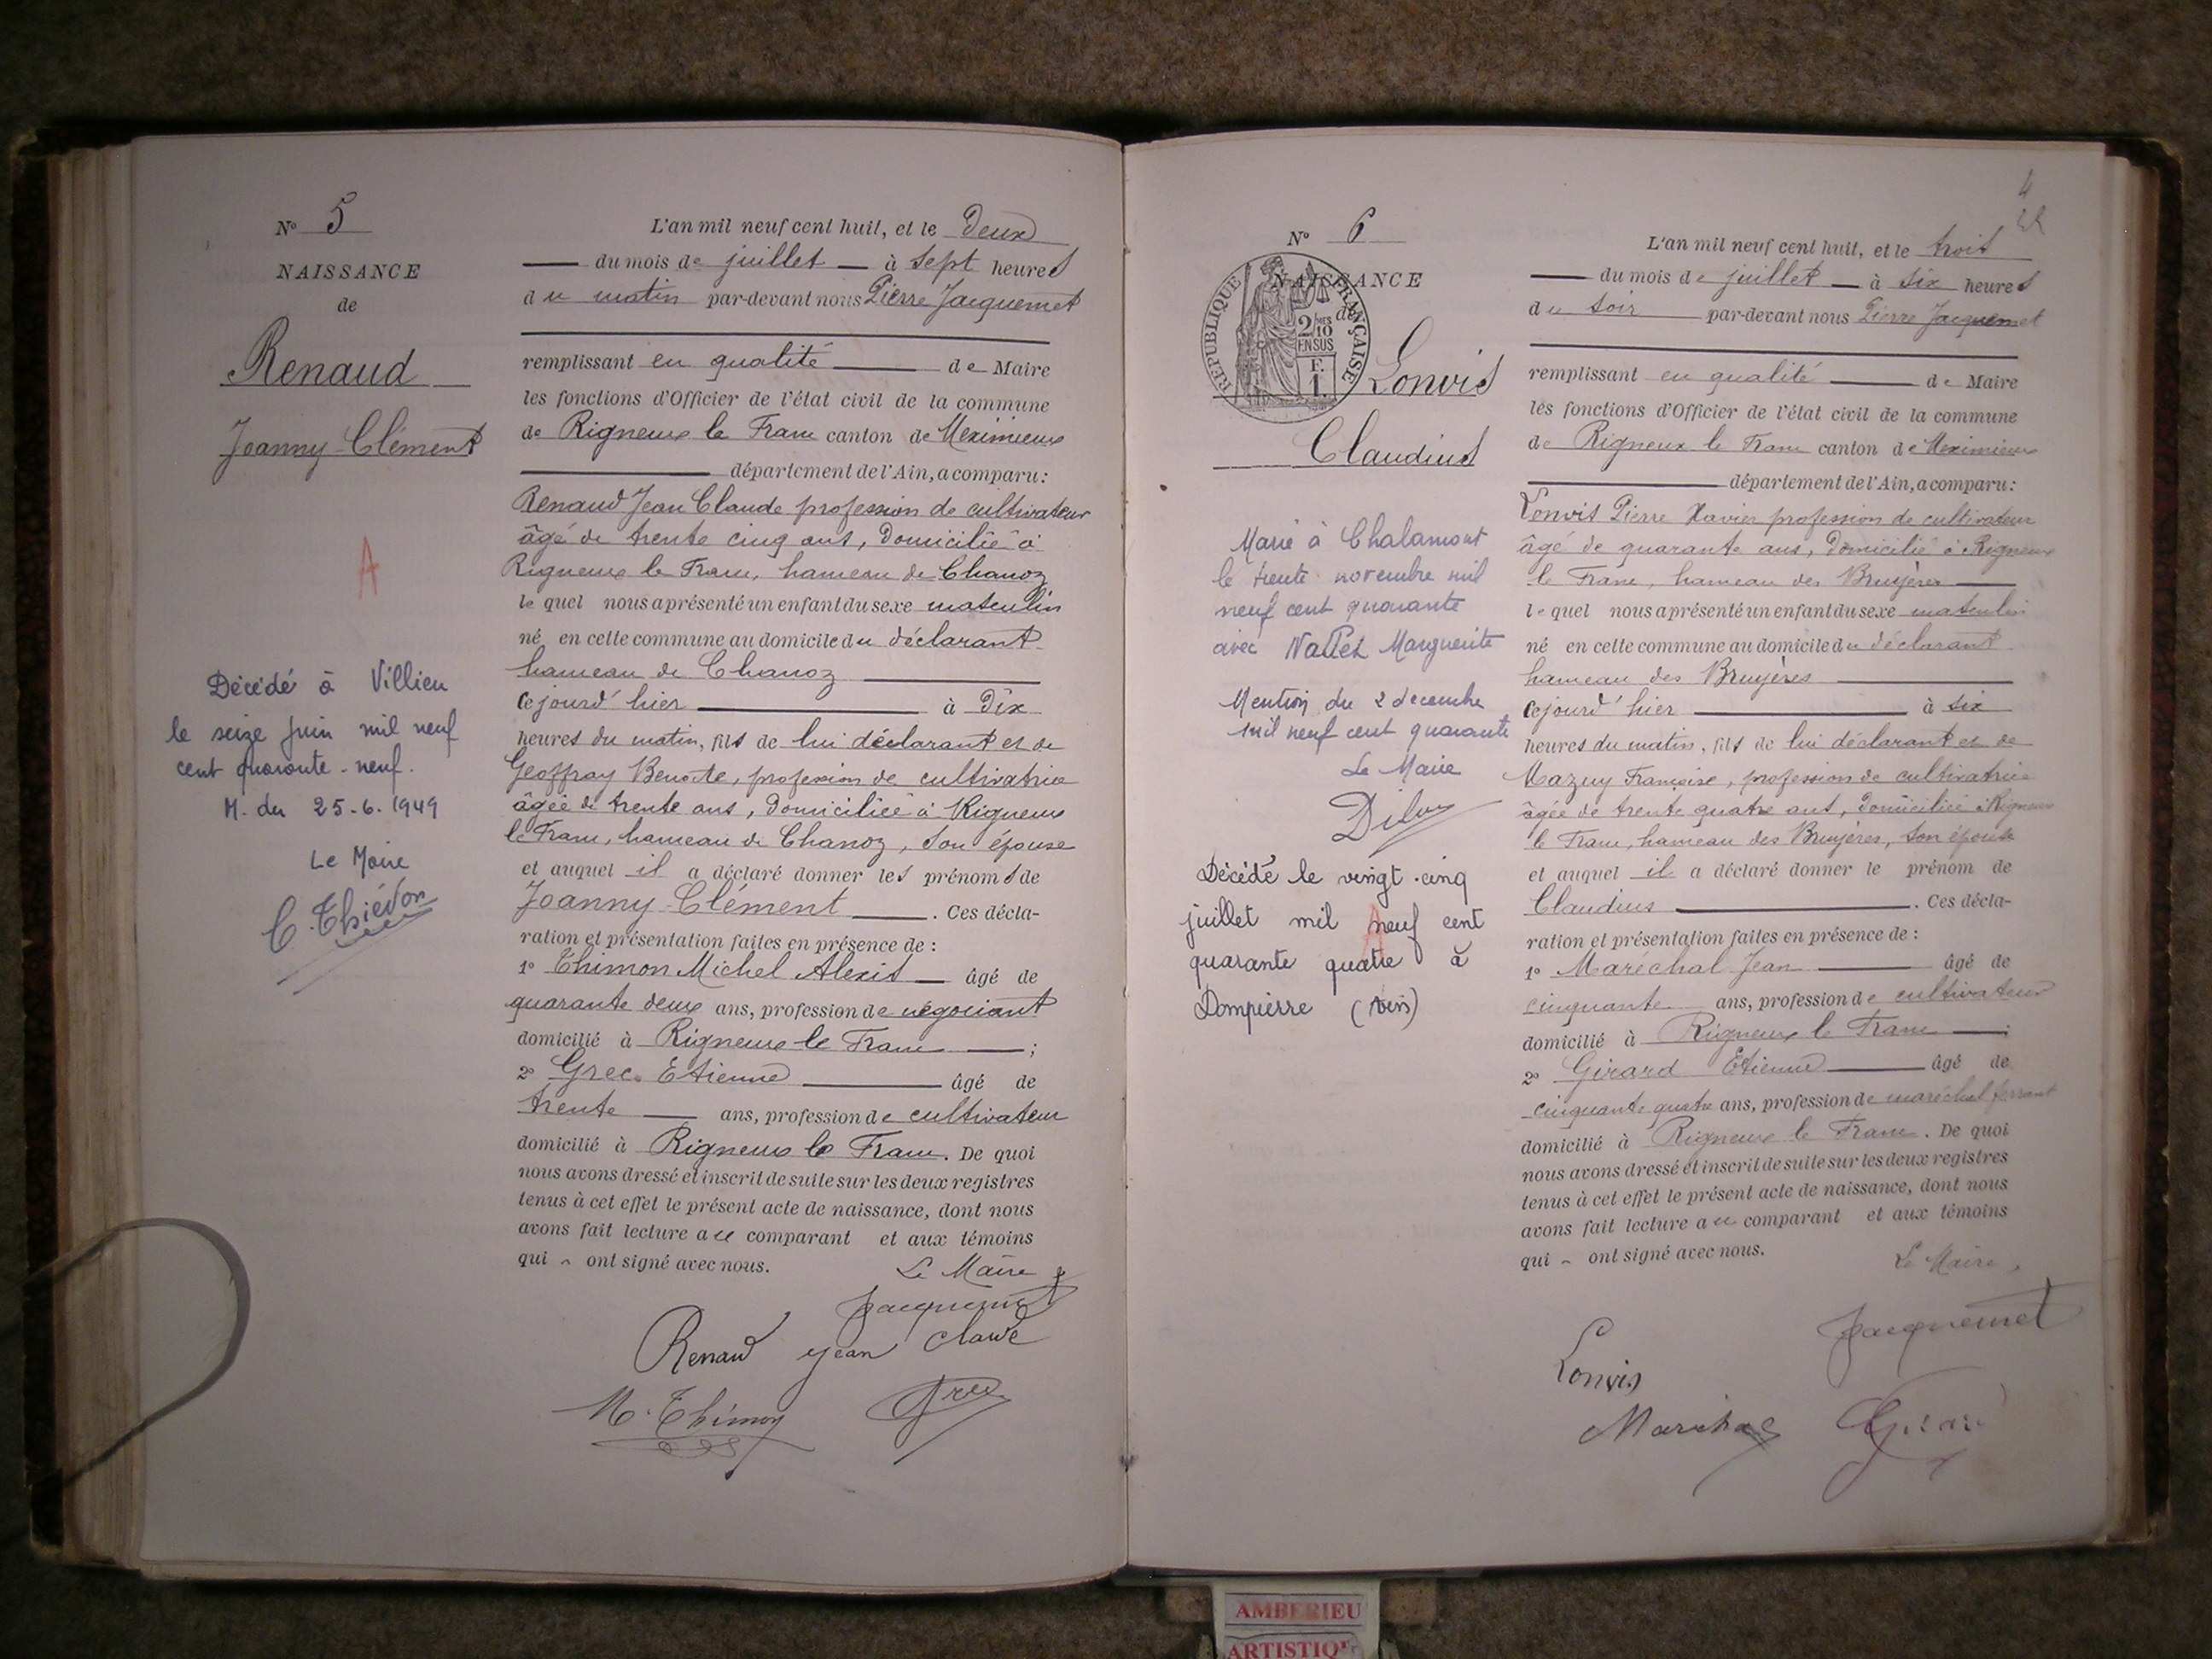 N° 5
NAISSANCE
de
Renaud
Joanny Clément
A
Décédé à Villieu
le seize juin mil neuf
cent quarante-neuf.
M. du 25-6-1949
Le Maire
C. Thiévon
L'an mil neuf cent huit, et le deux
du mois de juillet à sept heures
du matin par-devant nous Pierre Jacquemet
remplissant en qualité de Maire
les fonctions d'Officier de l'état civil de la commune
de Rigneux le Franc canton de Meximieux
département de l'Ain, a comparu:
Renaud Jean Claude profession de cultivateur
âgé de trente cinq ans, domicilié à
Rigneux le Franc, hameau de Chanoz
lequel nous a présenté un enfant du sexe masculin
né en cette commune au domicile du déclarant
hameau de Chanoz
Cejourd'hier à dix
heures du matin, fils de lui déclarant et de
Geoffray Benoîte, profession de cultivatrice
âgée de trente ans, domiciliée à Rigneux
le Franc, hameau de Chanoz, son épouse
et auquel il a déclaré donner les prénoms de
Joanny Clément. Ces décla-
ration et présentation faites en présence de :
1° Thimon Michel Alexis âgé de
quarante deux ans, profession de négociant
domicilié à Rigneux le Franc ;
2° Grec Etienne âgé de
trente ans, profession de cultivateur
domicilié à Rigneux le Franc. De quoi
nous avons dressé et inscrit de suite sur les deux registres
tenus à cet effet le présent acte de naissance, dont nous
avons fait lecture au comparant et aux témoins
qui ont signé avec nous.
Le Maire
Jacquemet
Renaud jean claude
M. Thimon Grec
4
N° 6
NAISSANCE
de
REPUBLIQUE FRANÇAISE
2/10
EN SUS
F.
1.
Lonvis
Claudius
Marié à Chalamont
le trente novembre mil
neuf cent quarante
avec Marguerite
Mention du 2 décembre
mil neuf cent quarante
Le Maire
Décédé le vingt-cinq
juillet mil neuf cent
quarante quatre à
Dompierre (Ain)
A
L'an mil neuf cent huit, et le trois
du mois de juillet à six heures
du soir par-devant nous Pierre Jacquemet
remplissant en qualité de Maire
les fonctions d'Officier de l'état civil de la commune
de Rigneux le Franc canton de Meximieux
département de l'Ain, a comparu:
Lonvis Pierre Xavier profession de cultivateur
âgé de quarante ans, domicilié à Rigneux
le Franc, hameau des Bruyères
lequel nous a présenté un enfant du sexe masculin
né en cette commune au domicile du déclarant
hameau des Bruyères
Cejourd'hier à six
heures du matin, fils de lui déclarant et de
Mazuy Françoise, profession de cultivatrice
âgée de trente quatre ans, domiciliée à Rigneux
le Franc, hameau des Bruyères, son épouse
et auquel il a déclaré donner le prénom de
Claudius. Ces décla-
ration et présentation faites en présence de :
1° Maréchal Jean âgé de
cinquante ans, profession de cultivateur
domicilié à Rigneux le Franc ;
2° Girard Etienne âgé de
cinquante quatre ans, profession de maréchal ferrant
domicilié à Rigneux le Franc. De quoi
nous avons dressé et inscrit de suite sur les deux registres
tenus à cet effet le présent acte de naissance, dont nous
avons fait lecture au comparant et aux témoins
qui ont signé avec nous.
Le Maire,
Jacquemet
Lonvis
Maréchal Girard
AMBERIEU
ARTISTIQ